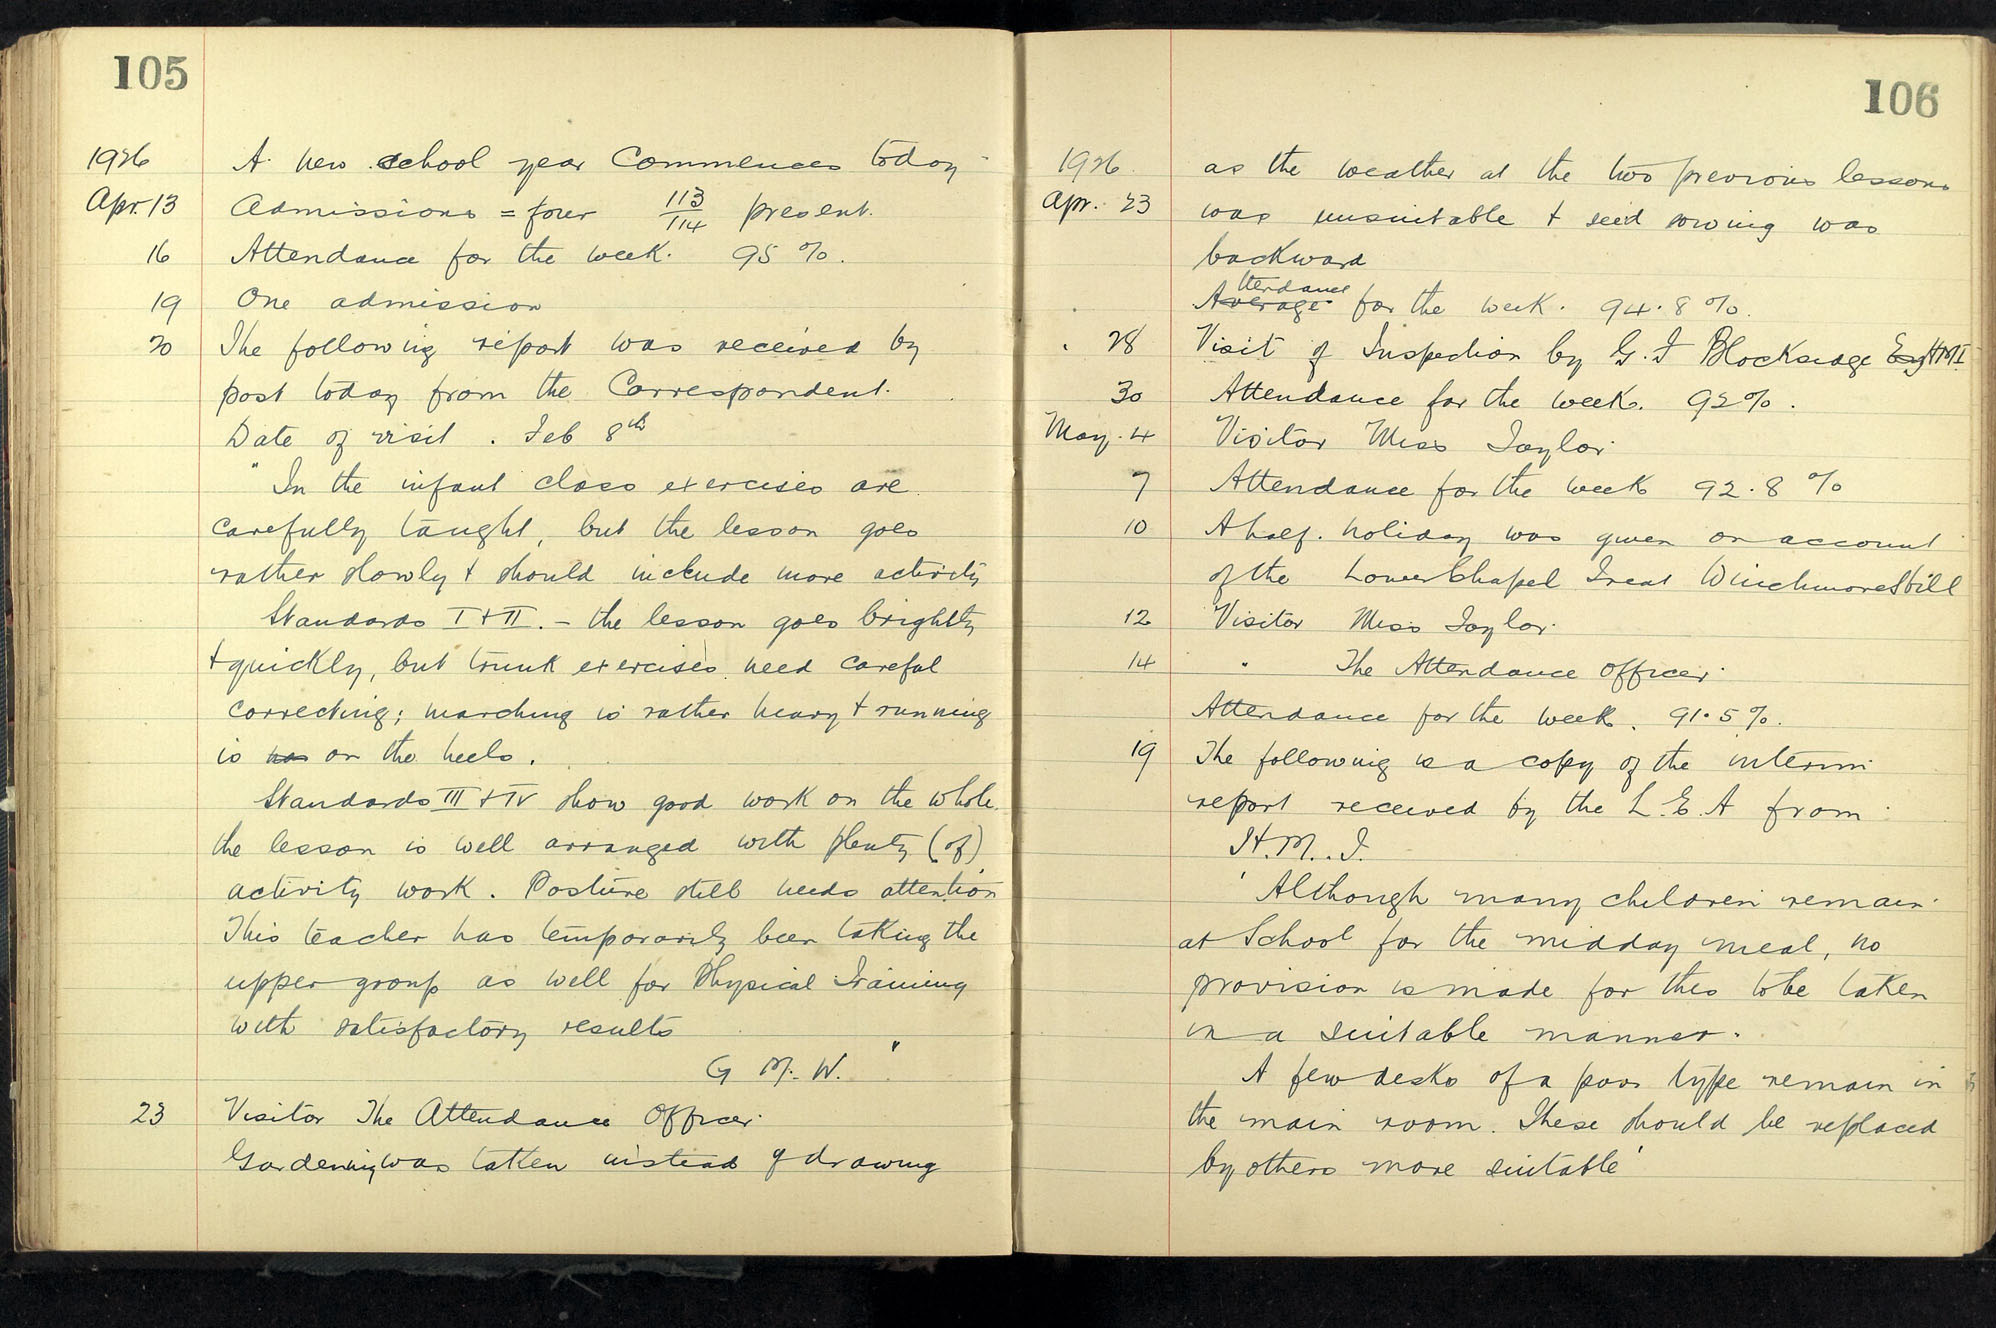 105
1926 A new school year commences today
Apr. 13 Admissions = four 113/114 present.
16 Attendance for the week. 95 %.
19 One admission
20 The following report was received by
post today from the Correspondent.
Date of visit. Feb 8th
"In the infant class exercises are
carefully taught, but the lesson goes
rather slowly & should include more activity
Standards I & II. – the lesson goes brightly
& quickly, but trunk exercises need careful
correcting; marching is rather heavy & running
is has on the heels.
Standards III & IV show good work on the whole.
the lesson is well arranged with plenty (of)
activity work. Posture still needs attention
This teacher has temporarily been taking the
upper group as well for Physical Training
with satisfactory results
G. M. W. "
23 Visitor The Attendance Officer.
Gardening was taken instead of drawing
106
1926. as the weather at the two previous lessons
Apr. 23 was unsuitable & seed sowing was
backward
ttendance
Average for the week. 94.8 %.
28 Visit of Inspection by G. J Blocksidge Esq HMI
30 Attendance for the week. 92%.
May. 4 Visitor Miss Taylor.
7 Attendance for the week 92.8 %
10 A half. holiday was given on account
of the Lower Chapel Treat Winchmore Hill
12 Visitor Miss Taylor.
14 " The Attendance Officer.
Attendance for the week. 91.5 %.
19 The following is a copy of the interim
report received by the L. E. A from
H. M. I.
'Although many children remain
at School for the midday meal, no
provision is made for this to be taken
in a suitable manner.
A few desks of a poor type remain in
the main room. These should be replaced
by others more suitable'